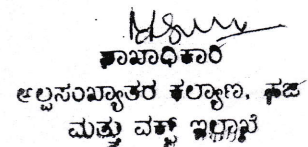 ಶಾಖಾಧಿಕಾರಿ
ಅಲ್ಪಸಂಖ್ಯಾತರ ಕಲ್ಯಾಣ, ಹಜ
ಮತ್ತು ವಕ್ಫ್ ಇಲ್ಲಾಖೆ